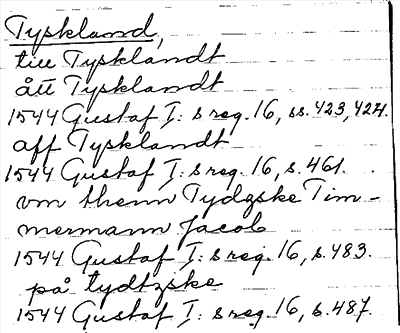 Tyskland,
till Tysklandt
átt Tysklandt
1544 Gustaf I: s reg. 16, ss. 423, 424.
aff Tysklandt
1544 Gustaf I: s reg. 16, s. 461.
vm thenn Tydzske Tim-
mermann Jacob
1544 Gustaf I: s reg. 16, s. 483.
på tydtzske
1544 Gustaf I: s reg. 16, s. 487.